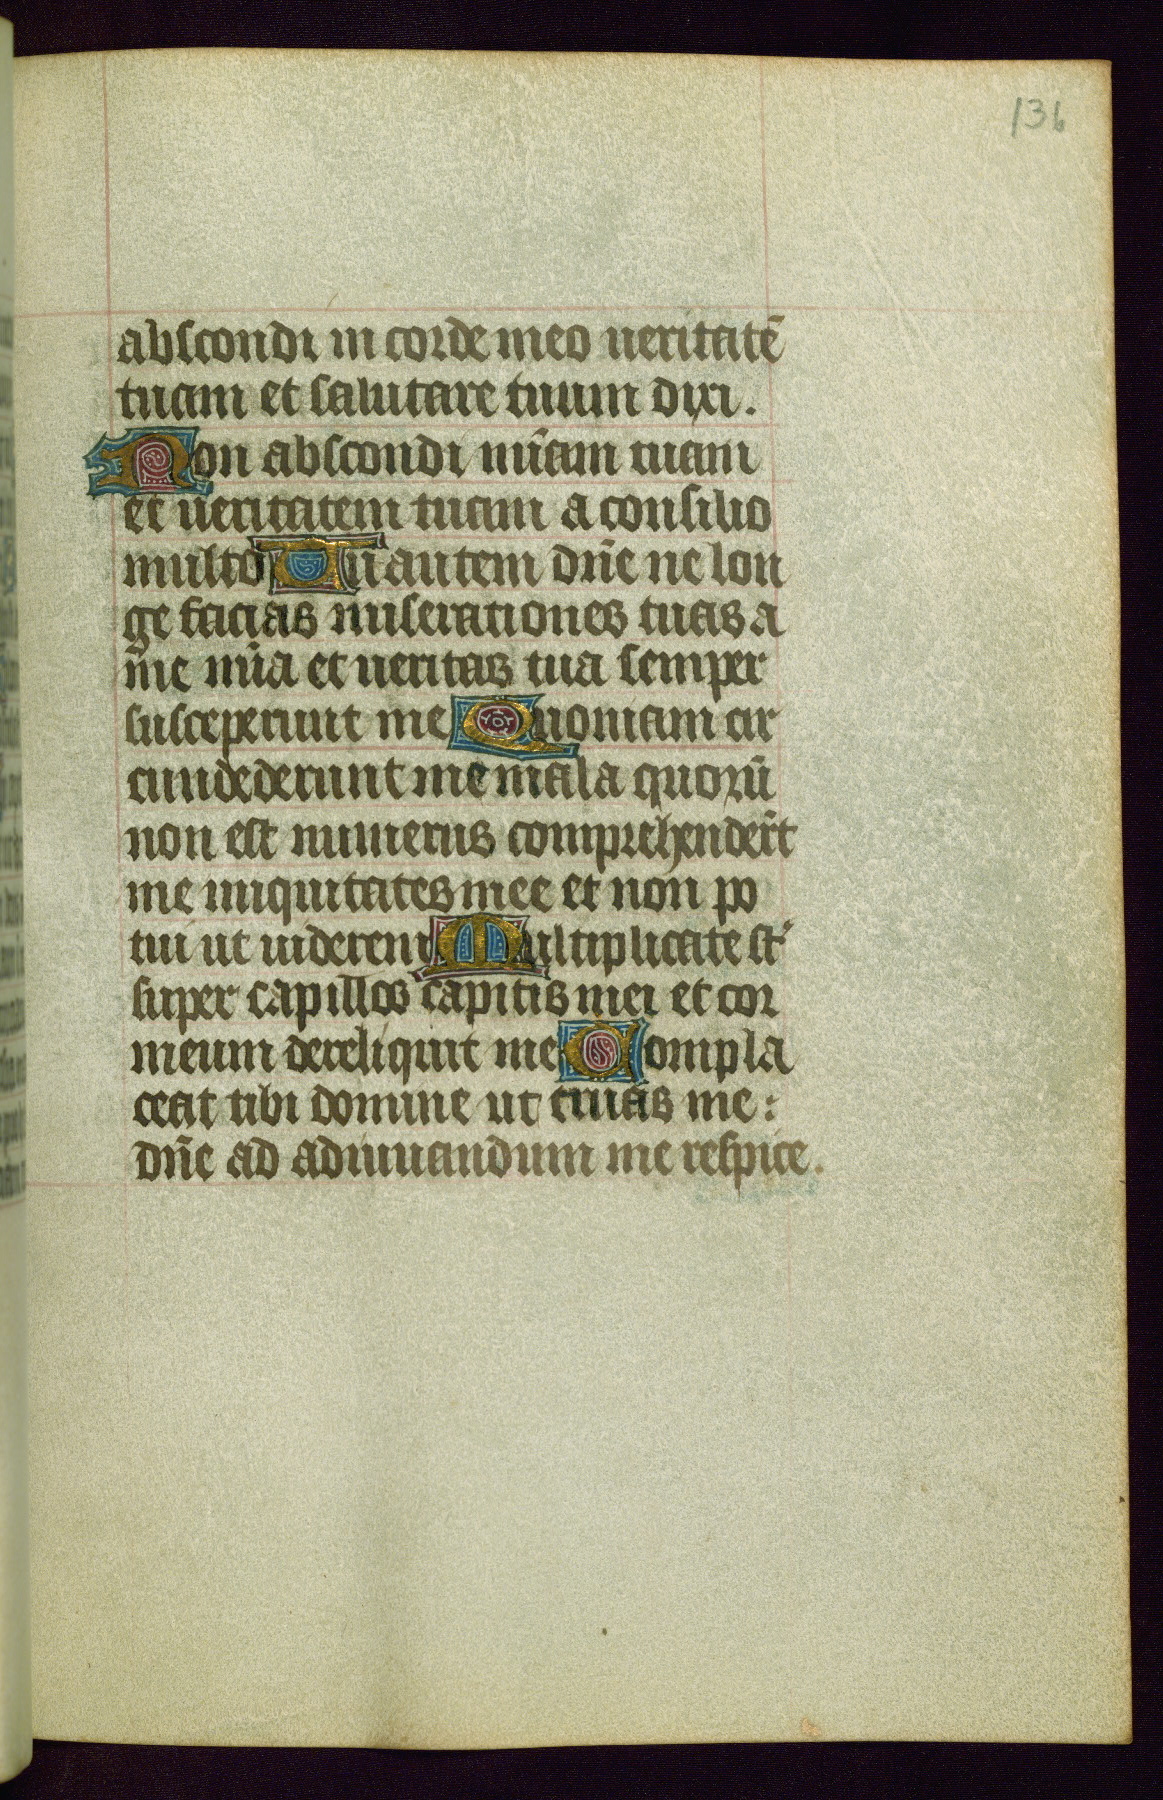 136
abscondi in corde meo ueritatē
tuam et salutare tuum dixi.
Non abscondi mīam tuam
et ueritatem tuam a consilio
multo Tu autem dn̄e ne lon
ge facias miserationes tuas a
me mīa et ueritas tua semper
susceperunt me Quoniam cir
cundederunt me mala quorū
non est numerus comprehender̄t
me iniquitates mee et non po
tui ut uiderem Multiplicate st̄
super capillos capitis mei et cor
meum dereliquit me Compla
ceat tibi domine ut eruas me :
dn̄e ad adiuuandum me respice.